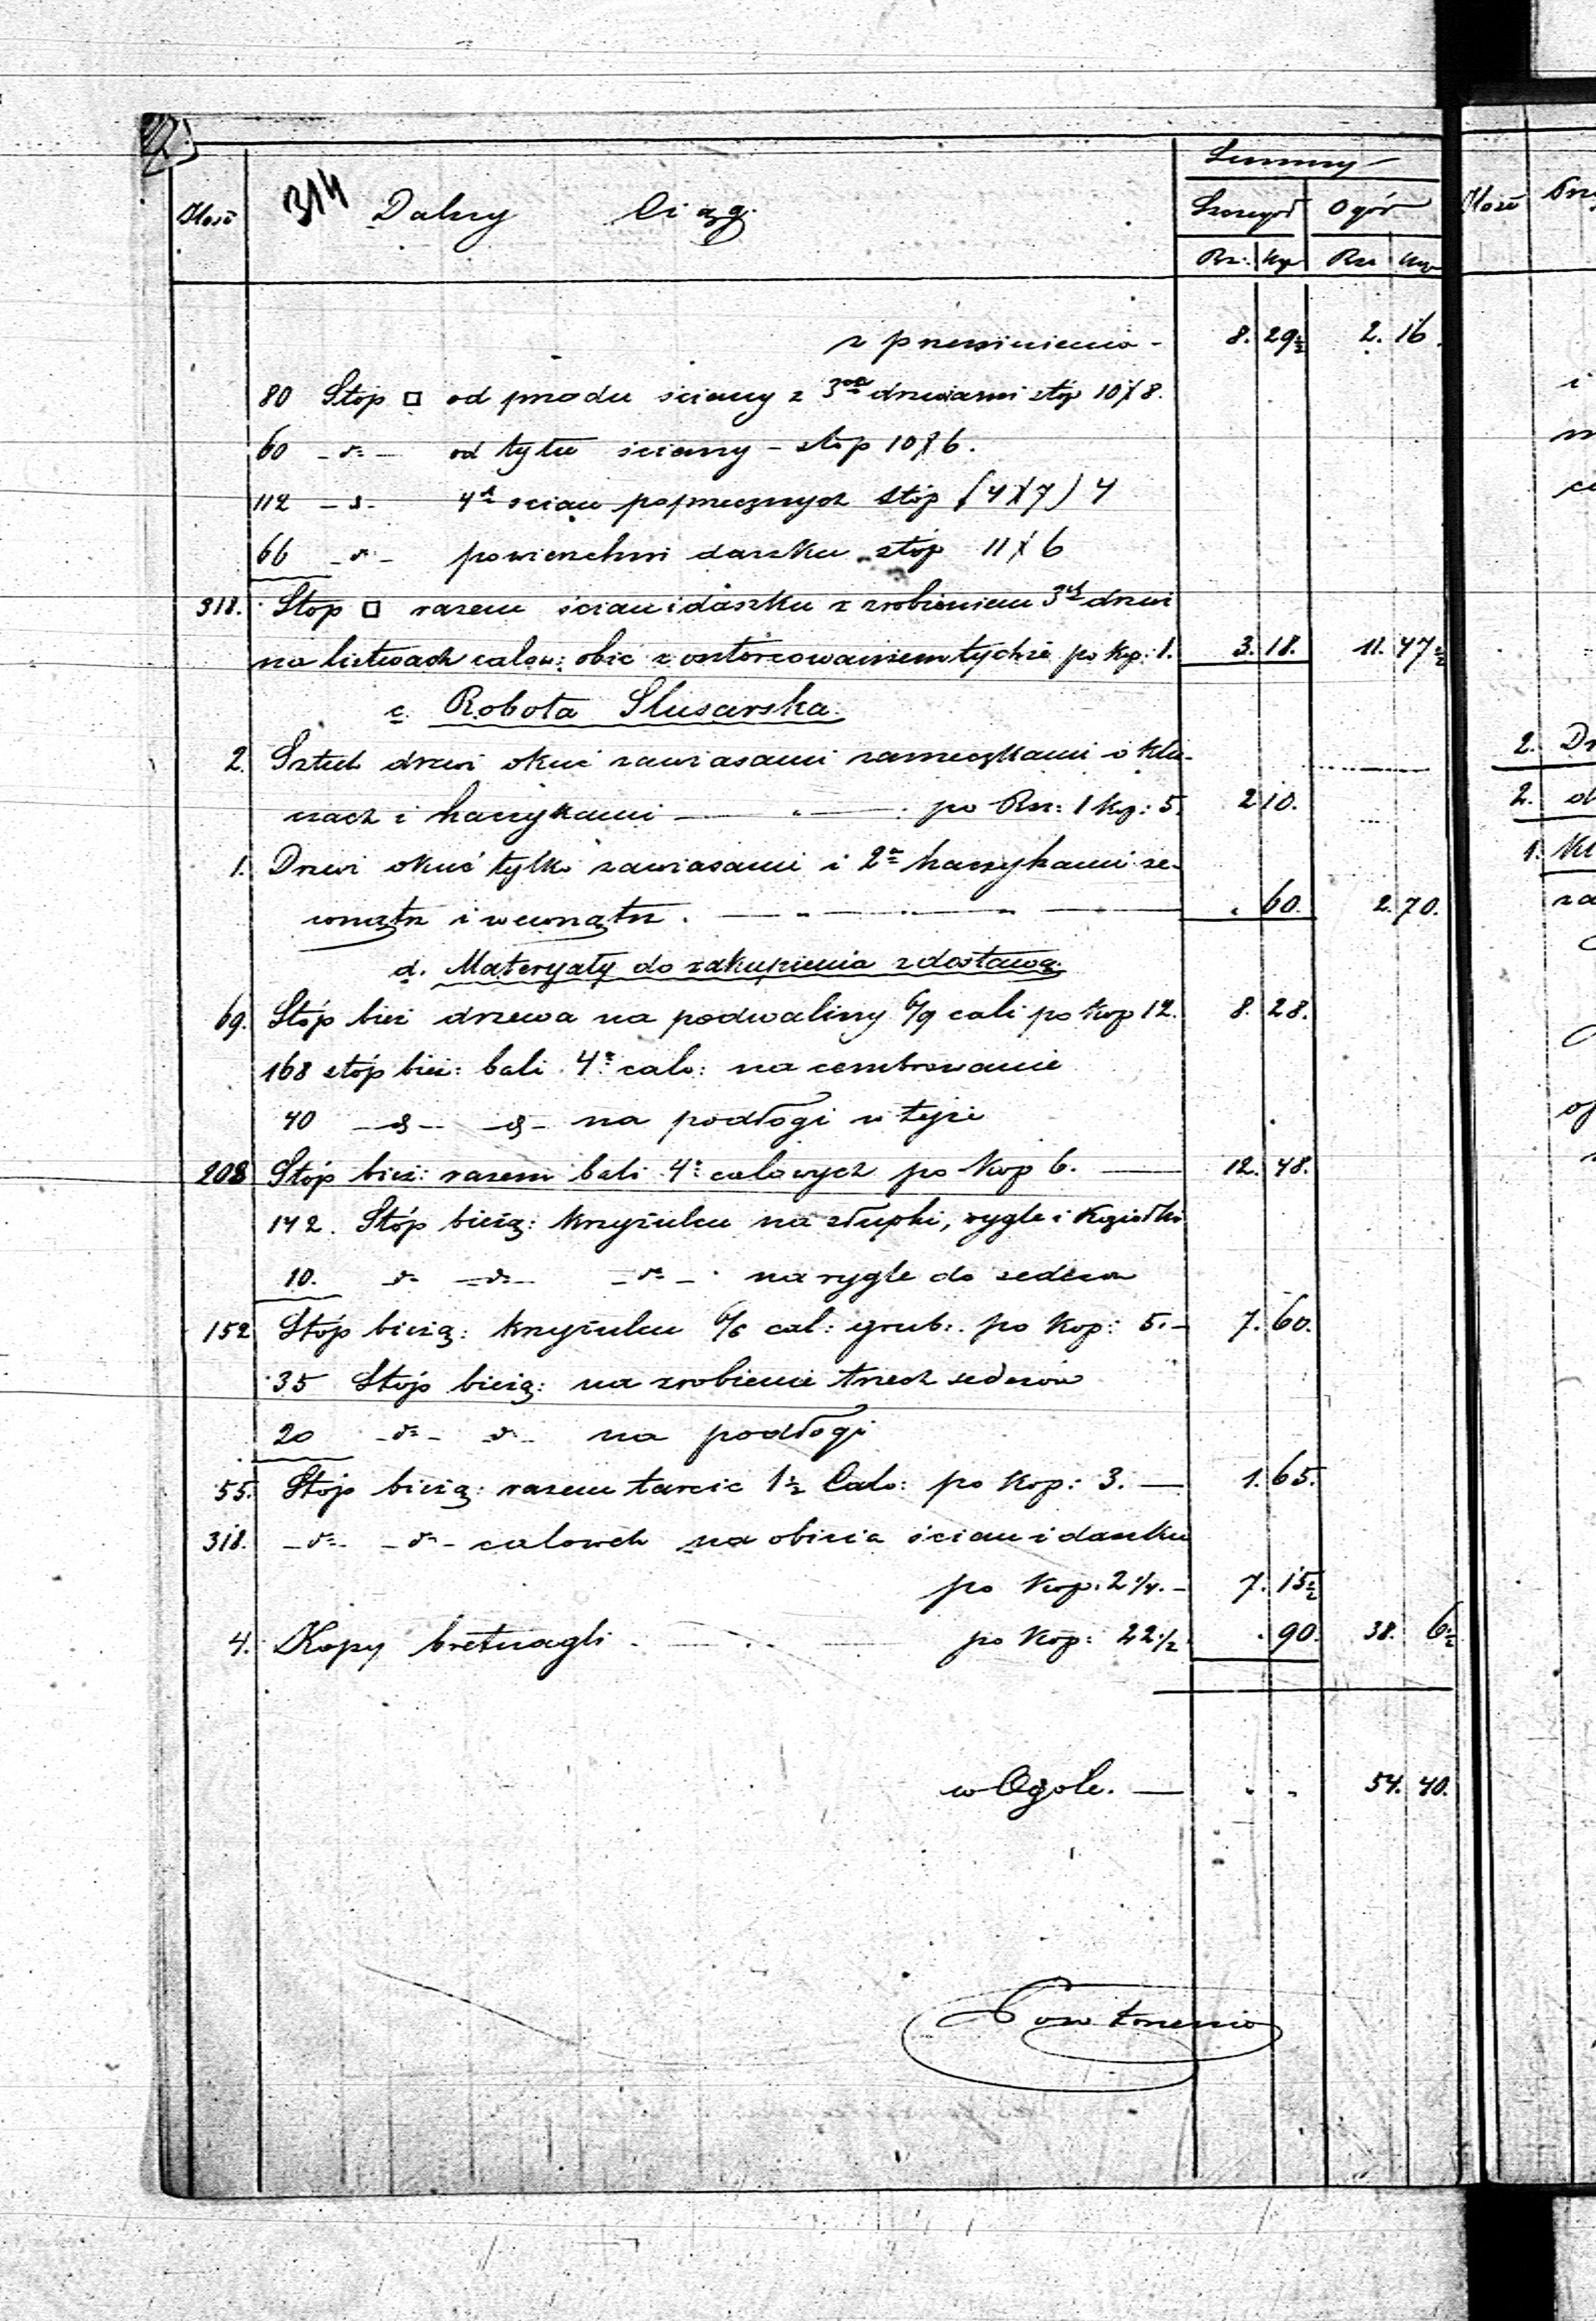 Summy
314
Ilość Dalszy Ciąg. Szczegół Ogół
Rs: Kop Rsr Kop
z przeniesienia - 8. 29½ 2. 16.
80 Stóp □ od przodu ściany z 3ma drzwiami stóp 10X8.
60 - d° - od tyłu ściany - stóp 10X6.
112 - d - 4ch ścian poprzecznych stóp (4X7) 4
66 - d° - powierzchni daszku stóp 11X6
318. Stóp □ razem ścian i daszku z zrobieniem 3ch drzwi
na listwach calow: obić z ostorcowaniem tychże po Kop: 1. 3. 18. 11. 47½
c. Robota Slusarska.
2. Sztuk drzwi okuć zawiasami zameczkami o klu-
czach i haczykami — " — po Rsr: 1 Kop: 5. 2 10.
1. Drzwi okuć tylko zawiasami i 2ma haczykami ze-
wnątrz i wewnątrz. — " — " — . 60. 2. 70.
d. Materyały do zakupienia z dostawą.
69. Stóp bież drzewa na podwaliny 6/9 cali po Kop 12. 8. 28.
168 stóp bież: bali 4° calo: na cembrowanie
40 - d - - d - na podłogi w tejże
208 Stóp bież: razem bali 4° calowych po Kop 6. — 12. 48.
142. Stóp bieżą: krzyżulcu na słupki, rygle i Koziołki
10. d° - d° - - d° - na rygle do sedesu
152 Stóp bieżą: krzyżulcu 6/6 cal: grub: po Kop: 5. - 7. 60.
35 Stóp bieżą: na zrobienie trzech sedesów
20 - d° - d° - na podłogi
55. Stóp bieżą: razem tarcic 1½ Calo: po Kop: 3. — 1. 65.
318. - d° - - d° - calowch na obicia ścian i daszku
po Kop: 2 1/4. - 7. 15½
4. Kopy bretnagli . — . . — po Kop: 22 1/2 . 90. 38. 6½
w Ogóle. — . . 54. 40.